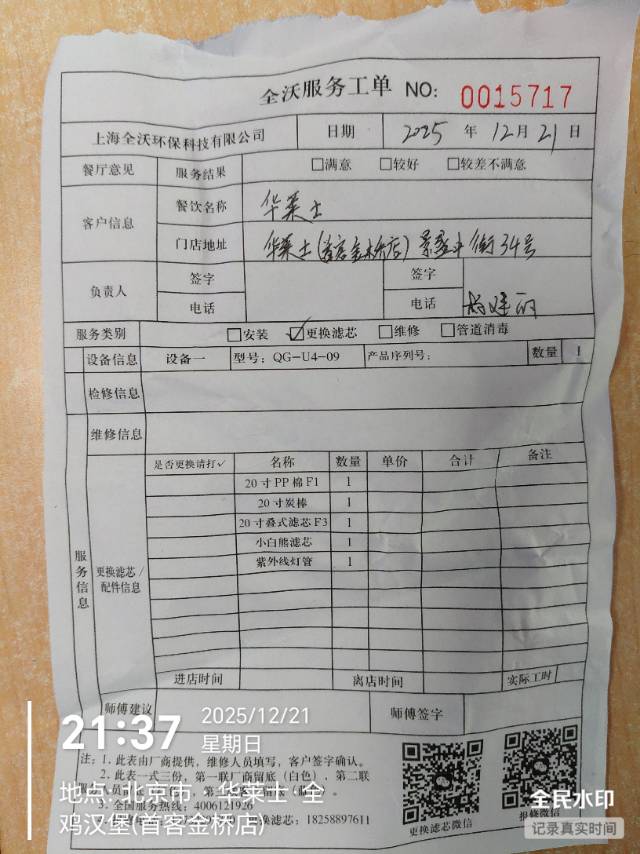 全沃服务工单 NO: 0015717
上海全沃环保科技有限公司 日期 2025 年 12 月 21 日
餐厅意见 服务结果 □满意 □较好 □较差不满意
客户信息 餐饮名称 华莱士
门店地址 华莱士(首客金桥店) 景盛中街34号
负责人 签字 签字
电话 电话
服务类别 □安装 ☑更换滤芯 □维修 □管道消毒
设备信息 设备一 型号: QG-U4-09 产品序列号: 数量 1
检修信息
维修信息
服务信息 更换滤芯/配件信息
是否更换请打✓ 名称 数量 单价 合计 备注
20寸PP棉F1 1
20寸炭棒 1
20寸叠式滤芯F3 1
小白熊滤芯 1
紫外线灯管 1
进店时间 离店时间 实际工时
师傅建议 师傅签字
注: 1、此表由厂商提供, 维修人员填写, 客户签字确认。
2、此表一式三份, 第一联厂商留底(白色), 第二联
3、全国服务热线: 4006121926
更换滤芯: 18258897611
更换滤芯微信 报修微信
21:37 2025/12/21
星期日
地点: 北京市·华莱士·全
鸡汉堡(首客金桥店)
全民水印
记录真实时间